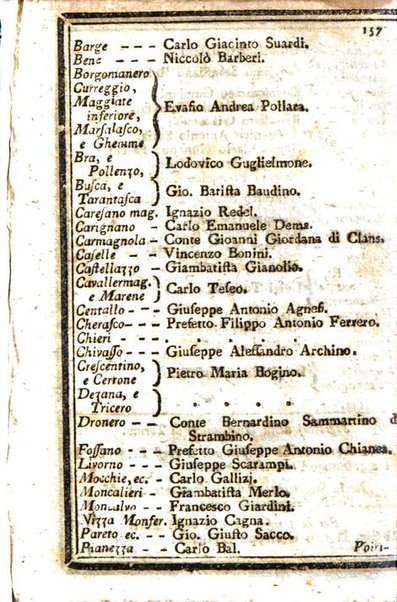 157
Barge - - - Carlo Giacinto Suardi.
Bene - - - Niccolò Barberi.
Borgomanero
Curreggio,
Maggiate
inferiore,
Marsalasco,
e Ghemme
Evasio Andrea Pollara.
Bra, e
Pollenzo,
Lodovico Guglielmone.
Busca, e
Tarantasca
Gio. Batista Baudino.
Caresano mag. Ignazio Redel.
Carignano - Carlo Emanuele Dema.
Carmagnola - Conte Gioanni Giordana di Clans.
Caselle - - Vincenzo Bonini.
Castellazzo - Giambatista Gianolio.
Cavallermag.
e Marene
Carlo Teseo.
Centallo - - Giuseppe Antonio Agnesi.
Cherasco - - Prefetto Filippo Antonio Ferrero.
Chieri - - - . . . .
Chivasso - - Giuseppe Alessandro Archino.
Crescentino,
e Cerrone
Pietro Maria Bogino.
Dezana, e
Tricero
. . . .
Dronero - - Conte Bernardino Sammartino d
Strambino.
Fossano - - Prefetto Giuseppe Antonio Chianea.
Livorno - - - Giuseppe Scarampi.
Mocchie, ec. - Carlo Gallizj.
Moncalieri - Giambatista Merlo.
Moncalvo - - Francesco Giardini.
Nizza Monfer. Ignazio Cagna.
Pareto ec. - - Gio. Giusto Sacco.
Pianezza - - Carlo Bal.
Poiri-